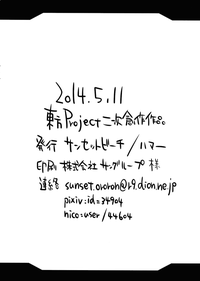 2014.5.11
東方Project二次創作作品。
発行 サンセットビーチ/ハマー
印刷 株式会社 サングループ 様
連絡 sunset.ororon@r9.dion.ne.jp
pixiv:id=34904
nico=user/44604